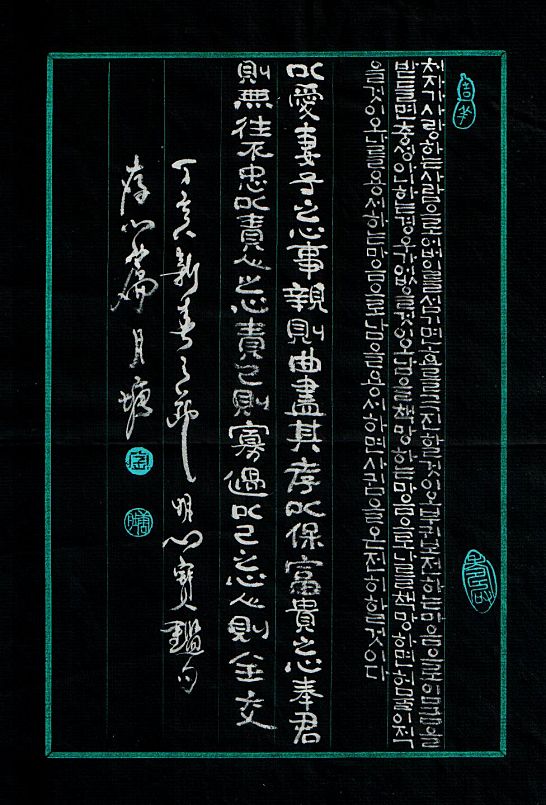 처자사랑하는사람으로어버이를섬기면효를극진할것이오부귀보전하는마음으로임금을
받들면충성아니하는경우가없을것이오남을책망하는마음으로나를책망하면허물이적
을것이오나를용서하는마음으로남을용서하면사귐을온전히할것이다
以愛妻子之心事親則曲盡其孝以保富貴之心奉君
則無往不忠以責人之心責己則寡過以己之心人則全交
丁亥新春之節 明心寶鑑句
存心篇 月塘